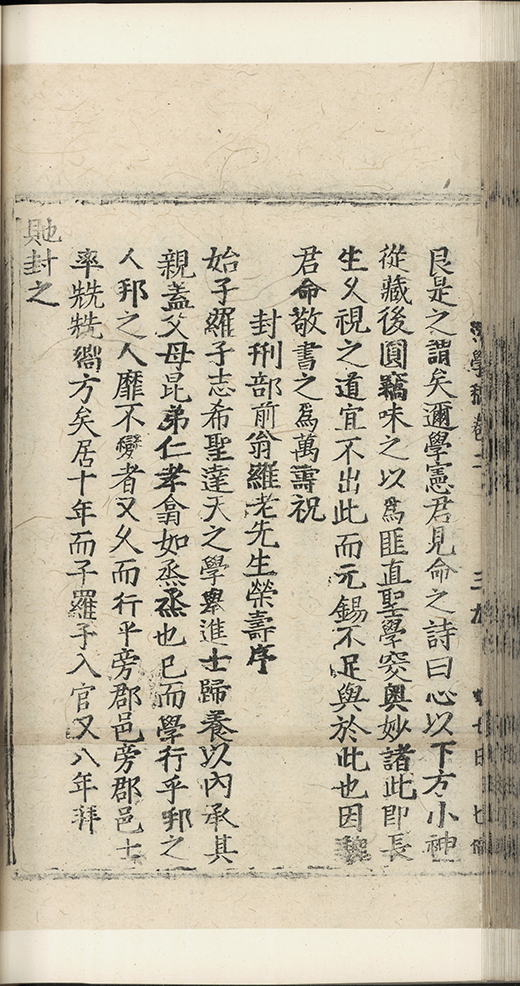 學稿卷
艮是之謂矣邇學憲君見命之詩曰心以下方小神
從藏後圓竊味之以爲匪直聖學突奧妙諸此即長
生乆視之道宜不出此而元錫不足與於此也因
君命敬書之爲萬壽祝
封刑部前翁羅老先生榮壽序
始子羅子志希聖達天之學舉進士歸養以內承其
親蓋父母昆弟仁孝翕如烝烝也已而學行乎邦之
人邦之人靡不變者又乆而行乎旁郡邑旁郡邑士
率兟兟嚮方矣居十年而子羅子入官又八年拜
貤封之